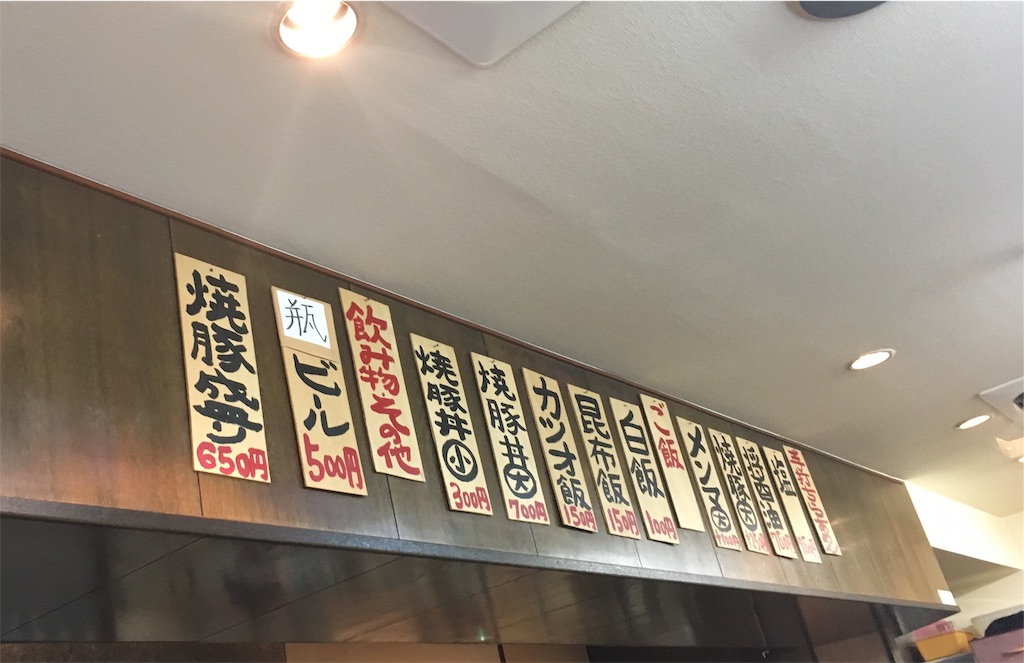 焼豚盛り
650円
瓶
ビール
500円
飲み物その他
焼豚丼小
300円
焼豚丼大
700円
カツオ飯
150円
昆布飯
150円
白飯
100円
ご飯
メンマ
焼豚